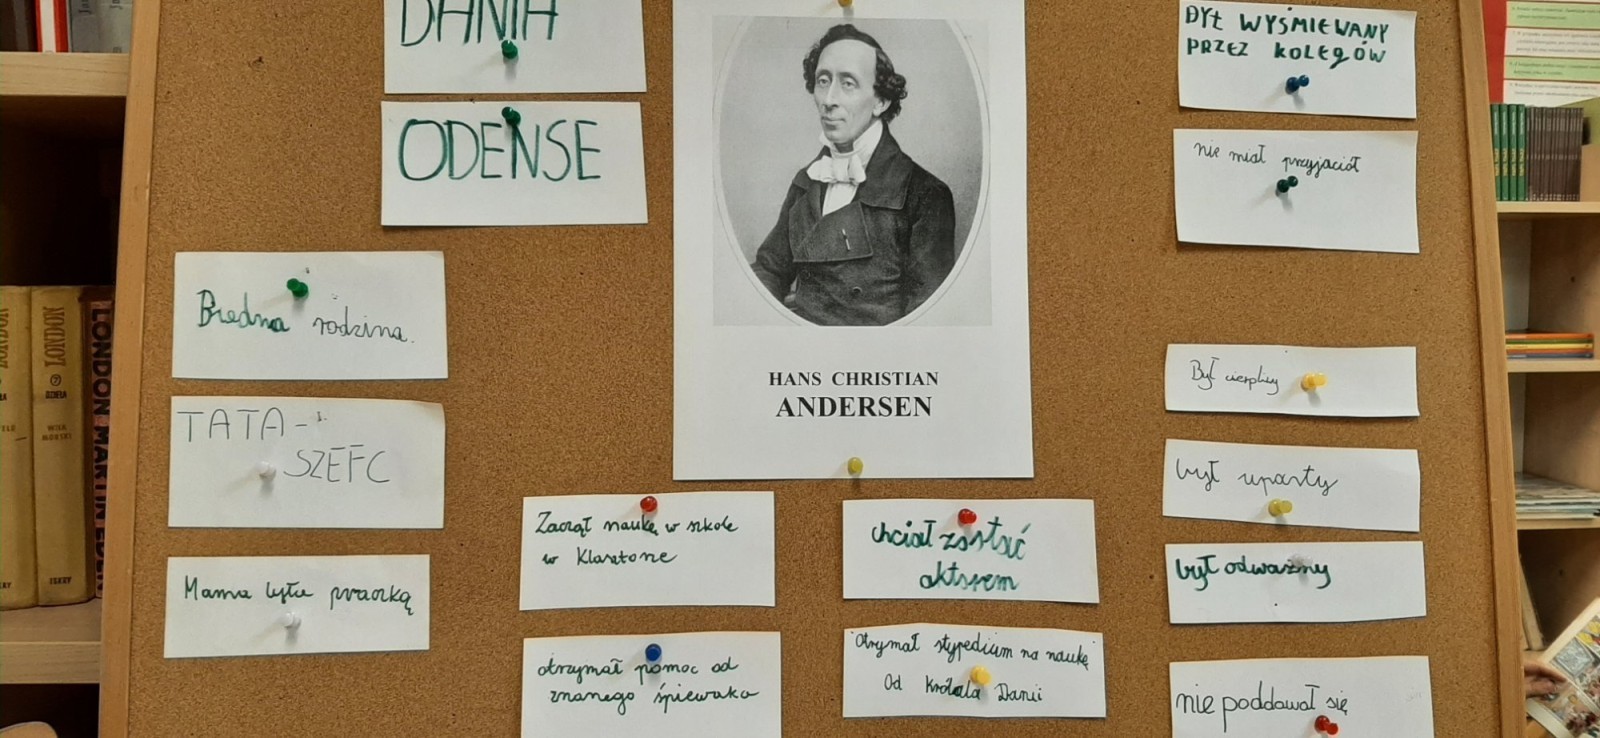 DANIA
ODENSE
Biedna rodzina.
TATA-
SZEFC
Mama była praczką
HANS CHRISTIAN
ANDERSEN
Zaczął naukę w szkole
w Klasztorze
otrzymał pomoc od
znanego śpiewaka
chciał zostać
aktorem
Otrzymał stypedium na naukę
Od Królala Danii
BYŁ WYŚMIEWANY
PRZEZ KOLEGÓW
nie miał przyjaciół
Był cierpliwy
był uparty
był odważny
nie poddawał się
LONDON
7
DZIEŁA
WILK
MORSKI
ISKRY
LONDON MARTIN EDEN